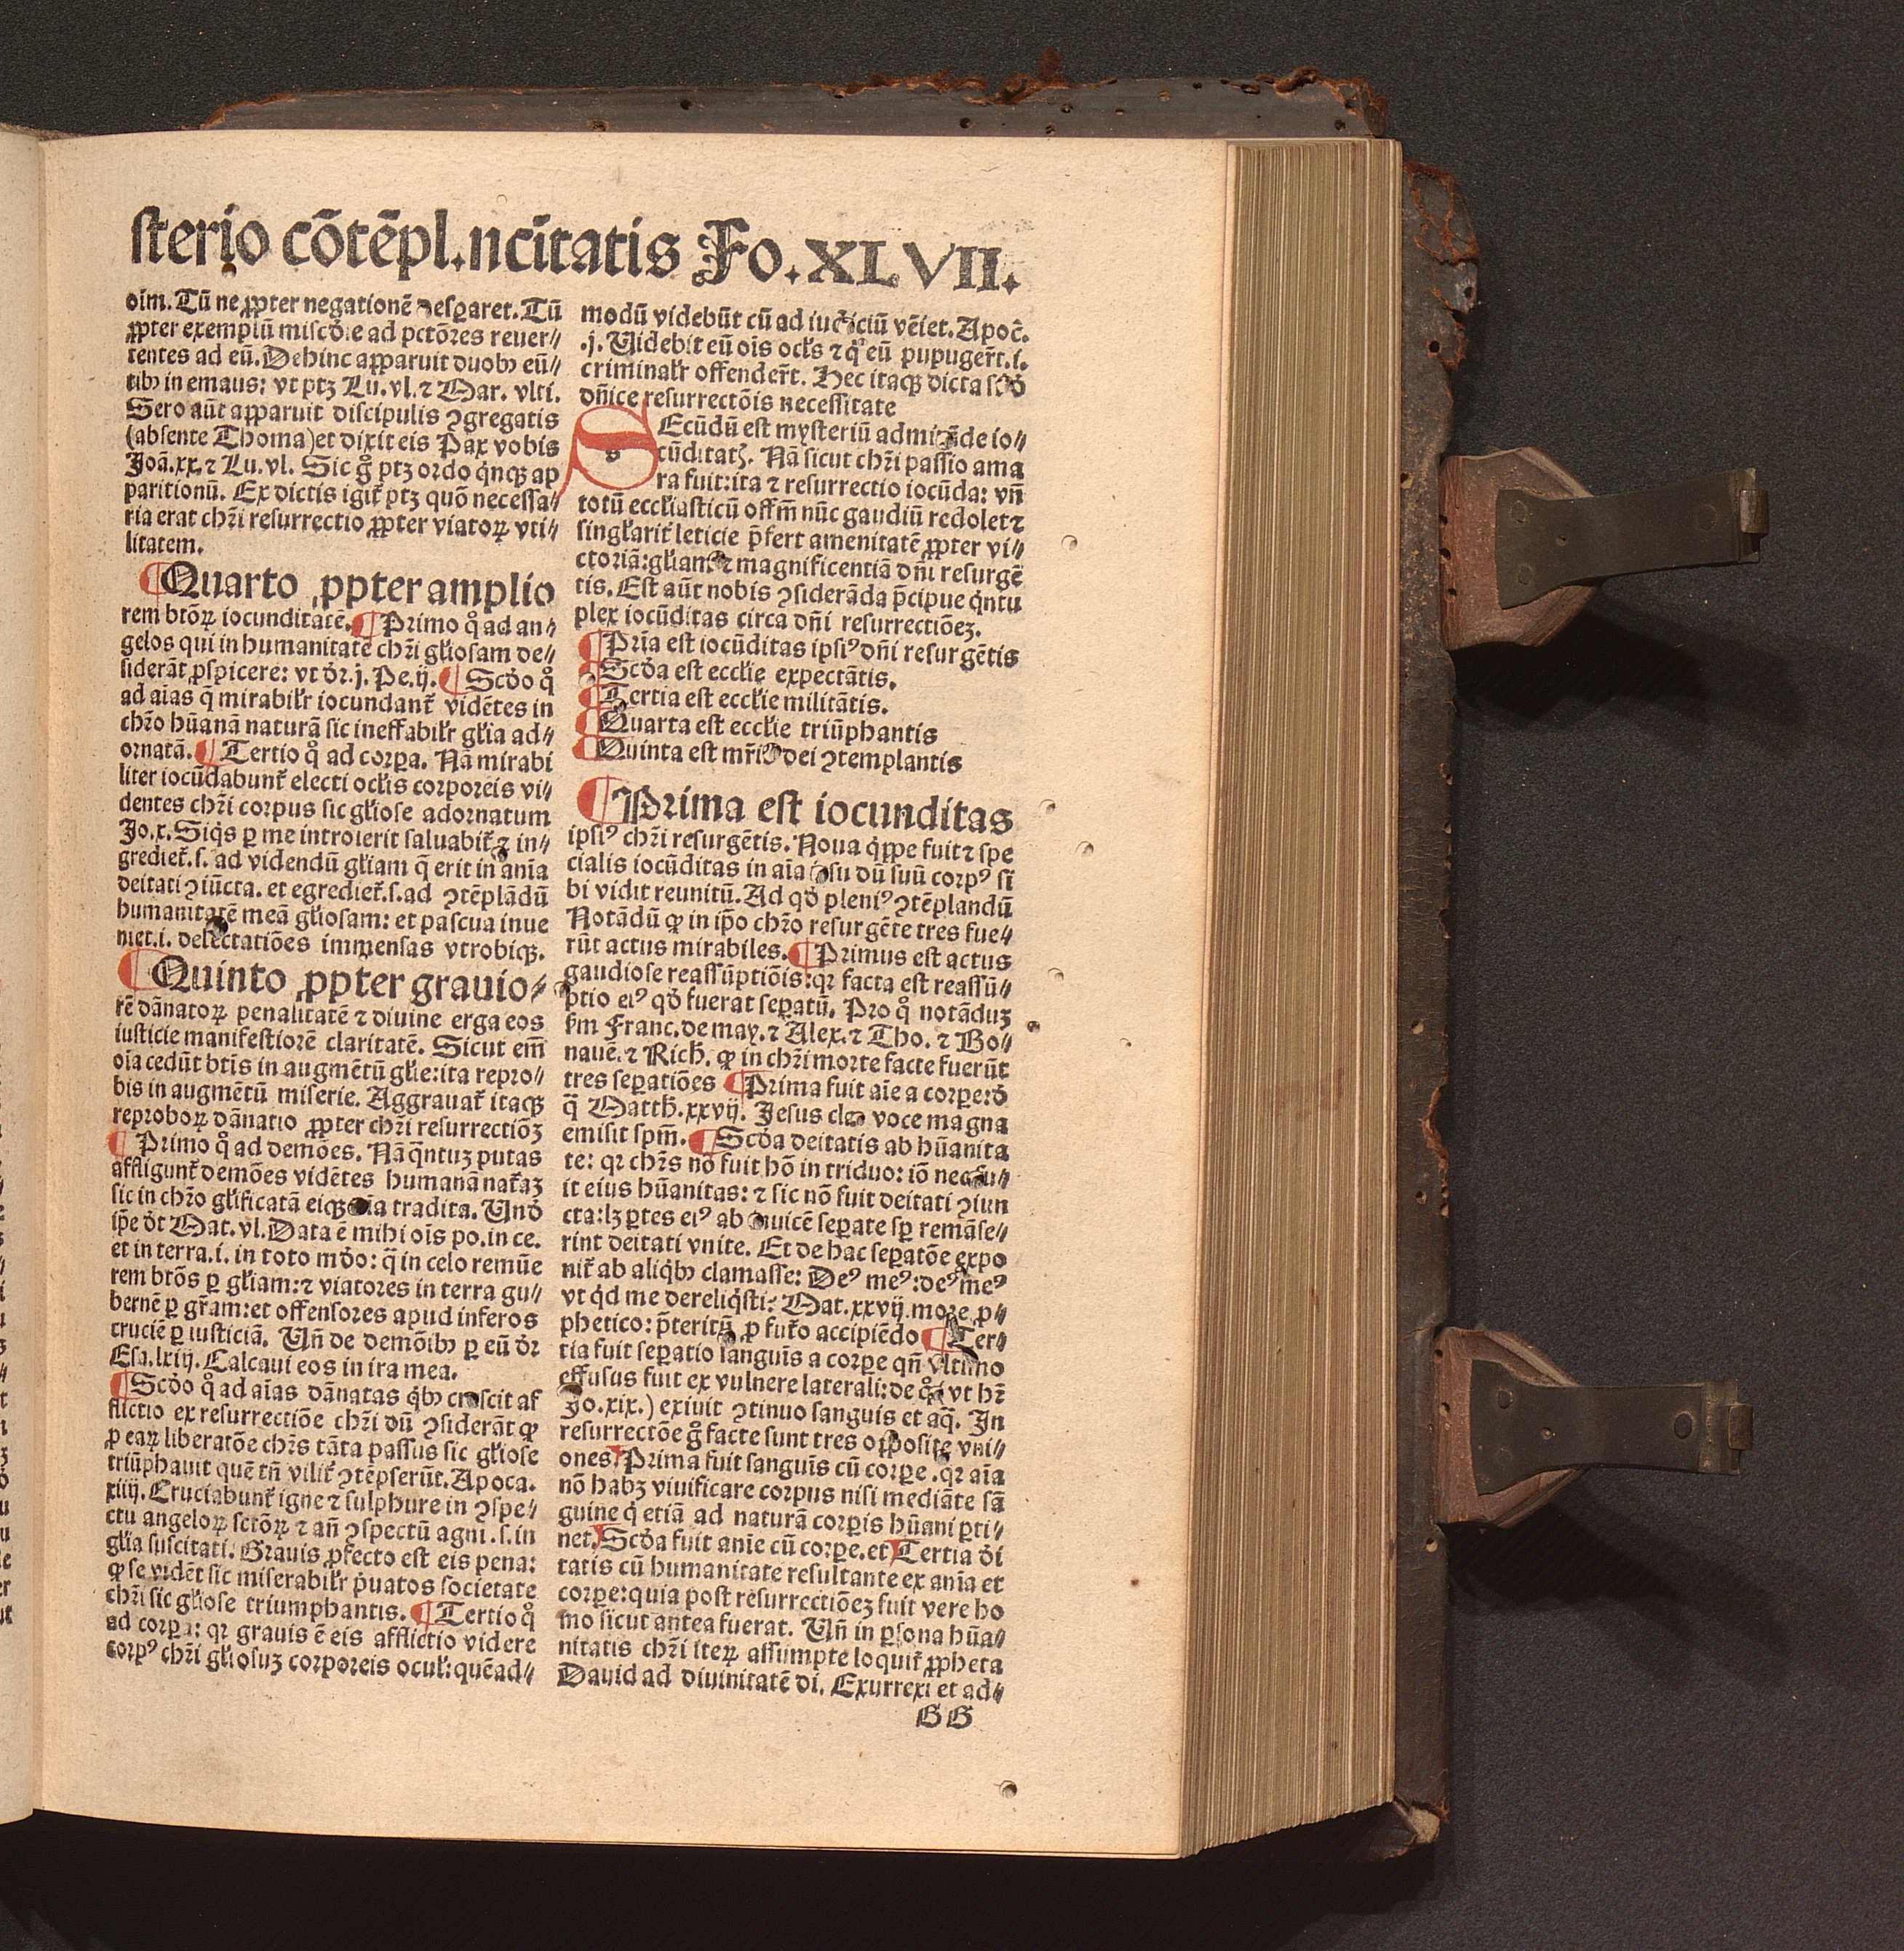 sterio cōtēpl.ncītatis Fo.XLVII.
oīm. Tū ne ꝓpter negationē desꝑaret. Tū
ꝓpter exemplū ad pctōres reuer⸗
tentes ad eū. Dehinc apparuit duobꝫ eū⸗
tibꝫ in emaus: vt ptꝫ Lu. vl. ⁊ Mar. vlti.
Sero aūt apparuit discipulis ↄgregatis
(absente Thoma) et dixit eis Pax vobis
Joā.xx. ⁊ Lu. vl. Sic gͦ ptꝫ ordo qͥnqꝫ ap
paritionū. Ex dictis igit᷑ ptꝫ quō necessa⸗
ria erat chr̄i resurrectio ꝓpter viatoꝝ vti⸗
litatem.
¶Quarto ꝓpter amplio
rem btōꝝ iocunditatē. ¶Primo qͦ ad an⸗
gelos qui in humanitatē chr̄i gl̓iosam de⸗
siderāt ꝓspicere: vt dr̄.j. Pe.ij. ¶Scd̓o qͦ
ad aīas q̄ mirabil̓r iocundant᷑ vidētes in
chr̄o hūanā naturā sic ineffabil̓r gl̓ia ad⸗
ornatā. ¶Tertio qͦ ad corꝑa. Nā mirabi
liter iocūdabunt᷑ electi ocl̓is corporeis vi⸗
dentes chr̄i corpus sic gl̓iose adornatum
Jo.x. Siqͥs ꝑ me introierit saluabit᷑ ⁊ in⸗
grediet᷑.s. ad videndū gl̓iam q̄ erit in anīa
deitati ↄiūcta. et egrediet᷑.s.ad ↄtēplādū
humanitatē meā gl̓iosam: et pascua inue
niet.i. delectatiōes immensas vtrobiqꝫ.
¶Quinto ꝓpter grauio⸗
rē dānatoꝝ penalitatē ⁊ diuine erga eos
iusticie manifestiorē claritatē. Sicut em̄
oīa cedūt btīs in augmētū gl̓ie: ita repro⸗
bis in augmētū miserie. Aggrauat᷑ itaqꝫ
reproboꝝ dānatio ꝓpter chr̄i resurrectiōꝫ
¶Primo qͦ ad demōes. Nā q̄ntuꝫ putas
affligunt᷑ demōes vidētes humanā nat᷑aꝫ
sic in chr̄o gl̓ificatā eiqꝫ oīa tradita. Und̓
ip̄e d̓t Mat. vl. Data ē mihi oīs po.in ce.
et in terra.i. in toto mōdo: q̄ in celo remūe
rem btōs ꝑ gl̓iam: ⁊ viatores in terra gu⸗
bernē ꝑ gr̄am: et offensores apud inferos
cruciē ꝑ iusticiā. Un̄ de demōibꝫ ꝑ eū dr̄
Esa.lxiij. Calcaui eos in ira mea.
¶Scd̓o qͦ ad aīas dānatas qͥbꝫ crescit af
flictio ex resurrectiōe chr̄i dū ↄsiderāt ꝙ
ꝓ eaꝝ liberatōe chr̄s tāta passus sic gl̓iose
triūphauit quē tn̄ vilit᷑ ↄtēpserūt. Apoca.
xiiij. Cruciabunt᷑ igne ⁊ sulphure in ↄspe⸗
ctu angeloꝝ sctōꝝ ⁊ an̄ ↄspectū agni.s.in
gl̓ia suscitati. Grauis ꝓfecto est eis pena:
ꝙ se vidēt sic miserabil̓r pͥuatos societate
chr̄i sic gl̓iose triumphantis. ¶Tertio qͦ
ad corꝑa: qꝛ grauis ē eis afflictio videre
corpꝰ chr̄i gl̓iosuꝫ corporeis ocul̓: quēad⸗
modū videbūt cū ad iudiciū vēiet. Apoc̄.
.j. Videbit eū oīs ocl̓s ⁊ qͥ eū pupuger̄t.i.
criminal̓r offender̄t. Hec itaqꝫ dicta
dn̄ice resurrectōis necessitate
SEcūdū est mysteriū admirāde io⸗
cūditatꝭ. Nā sicut chr̄i passio ama
ra fuit: ita ⁊ resurrectio iocūda: vn̄
totū eccl̓iasticū offm̄ nūc gaudiū redolet ⁊
singl̓arit᷑ leticie p̄fert amenitatē ꝓpter vi⸗
ctoriā: gl̓iam ⁊ magnificentiā dn̄i resurgē
tis. Est aūt nobis ↄsiderāda p̄cipue qͥntu
plex iocūditas circa dn̄i resurrectiōeꝫ.
¶Prīa est iocūditas ipsiꝰ dn̄i resurgētis
¶Scd̓a est eccl̓ie expectātis.
¶Tertia est eccl̓ie militātis.
¶Quarta est eccl̓ie triūphantis
¶Quinta est mr̄is dei ↄtemplantis
¶Prima est iocunditas
ipsiꝰ chr̄i resurgētis. Noua qͥppe fuit ⁊ spe
cialis iocūditas in aīa iesu dū suū corpꝰ si
bi vidit reunitū. Ad qd̓ pleniꝰ ↄtēplandū
Notādū ꝙ in ip̄o chr̄o resurgēte tres fue⸗
rūt actus mirabiles. ¶Primus est actus
gaudiose reassūptiōis: qꝛ facta est reassū⸗
ptio eiꝰ qd̓ fuerat seꝑatū. Pro qͦ notāduꝫ
s̄m Franc. de may. ⁊ Alex. ⁊ Tho. ⁊ Bo⸗
nauē. ⁊ Rich̄. ꝙ in chr̄i morte facte fuerūt
tres seꝑatiōes ¶Prima fuit aīe a corꝑe: d̓
q̄ Matth̄.xxvij. Jesus voce magna
emisit spm̄. ¶Scd̓a deitatis ab hūanita
te: qꝛ chr̄s nō fuit hō in triduo: iō nec fu⸗
it eius hūanitas: ⁊ sic nō fuit deitati ↄiun
cta: lꝫ ꝑtes eiꝰ ab inuicē seꝑate sꝑ remāse⸗
rint deitati vnite. Et de hac seꝑatōe expo
nit᷑ ab aliqͥbꝫ clamasse: Deꝰ meꝰ: deꝰ meꝰ
vt qͥd me dereliqͥsti: Mat.xxvij. more ꝓ⸗
phetico: p̄teritū ꝓ fut᷑o accipiēdo ¶Ter⸗
tia fuit seꝑatio sanguīs a corꝑe qn̄ vltimo
effusus fuit ex vulnere laterali: de qͦ (vt hr̄
Jo.xix.) exiuit ↄtinuo sanguis et aq̄. In
resurrectōe gͦ facte sunt tres opposite vni⸗
ones Prima fuit sanguīs cū corꝑe. qꝛ aīa
nō habꝫ viuificare corpus nisi mediāte sā
guine qͥ etiā ad naturā corꝑis hūani ꝑti⸗
net. Scd̓a fuit anīe cū corꝑe. et Tertia d̓i
tatis cū humanitate resultante ex anīa et
corꝑe: quia post resurrectiōeꝫ fuit vere ho
mo sicut antea fuerat. Un̄ in ꝑsona hūa⸗
nitatis chr̄i iteꝝ assumpte loquit᷑ ꝓpheta
Dauid ad diuinitatē di. Exurrexi et ad⸗
GG